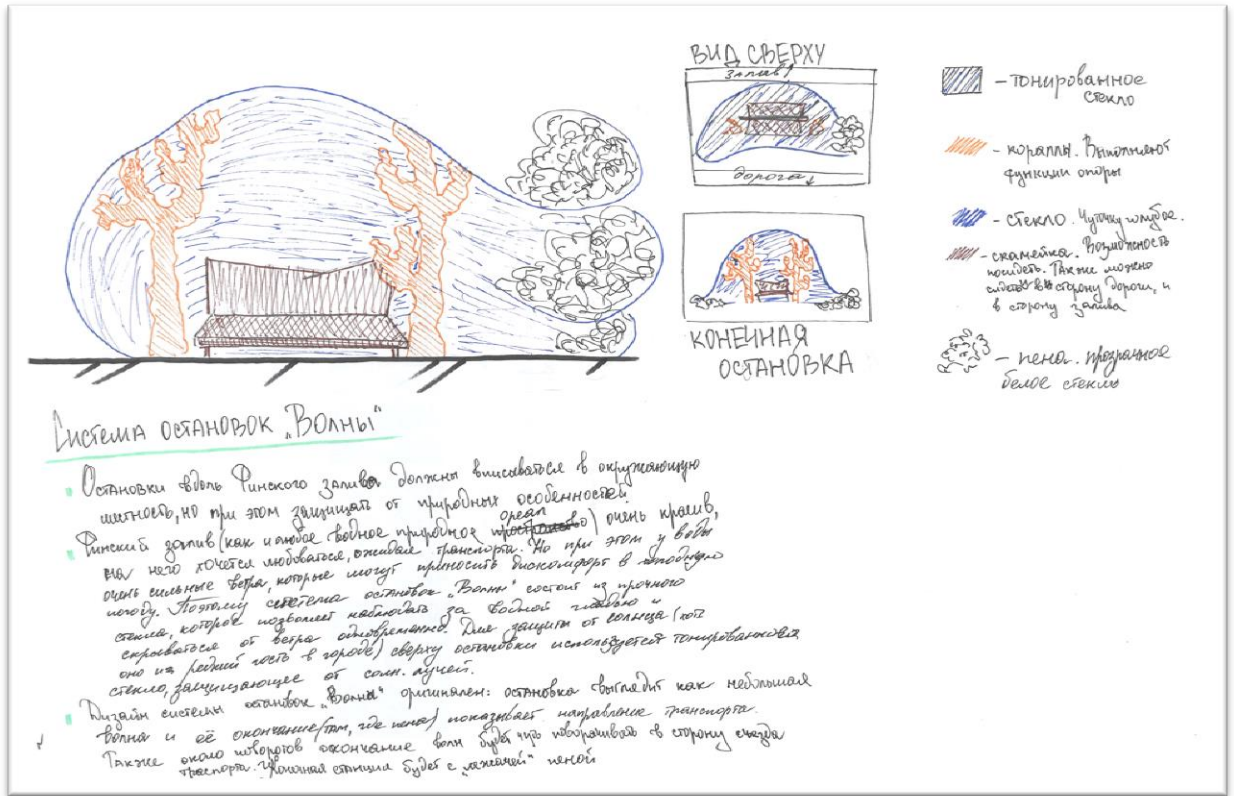 ВИД СВЕРХУ
залив↑
дорога↓
КОНЕЧНАЯ
ОСТАНОВКА
- тонированное
стекло
- кораллы. Выполняют
функции опоры
- стекло. Чуточку голубое.
- скамейка. Возможность
посидеть. Также можно
сидеть в сторону дороги, и
в сторону залива
- пена. прозрачное
белое стекло
Система остановок „Волны“
Остановки вдоль Финского залива должны вписываться в окружающую
местность, но при этом защищать от природных особенностей.
Финский залив (как и любое водное природное ореал) очень красив,
на него хочется любоваться, ожидая транспорта. Но при этом у воды
очень сильные ветра, которые могут приносить дискомфорт в холодную
погоду. Поэтому система остановок „Волны“ состоит из прочного
стекла, которое позволяет наблюдать за водной гладью и
скрываться от ветра одновременно. Для защиты от солнца (хоть
оно и редкий гость в городе) сверху остановки используется тонированное
стекло, защищающее от солн. лучей.
Дизайн системы остановок „Волны“ оригинален: остановка выглядит как небольшая
волна и её окончание (там, где пена) показывает направление транспорта.
Также около поворотов окончание волн будет чуть поворачивать в сторону съезда
траспорта. Конечная станция будет с „лежачей“ пеной